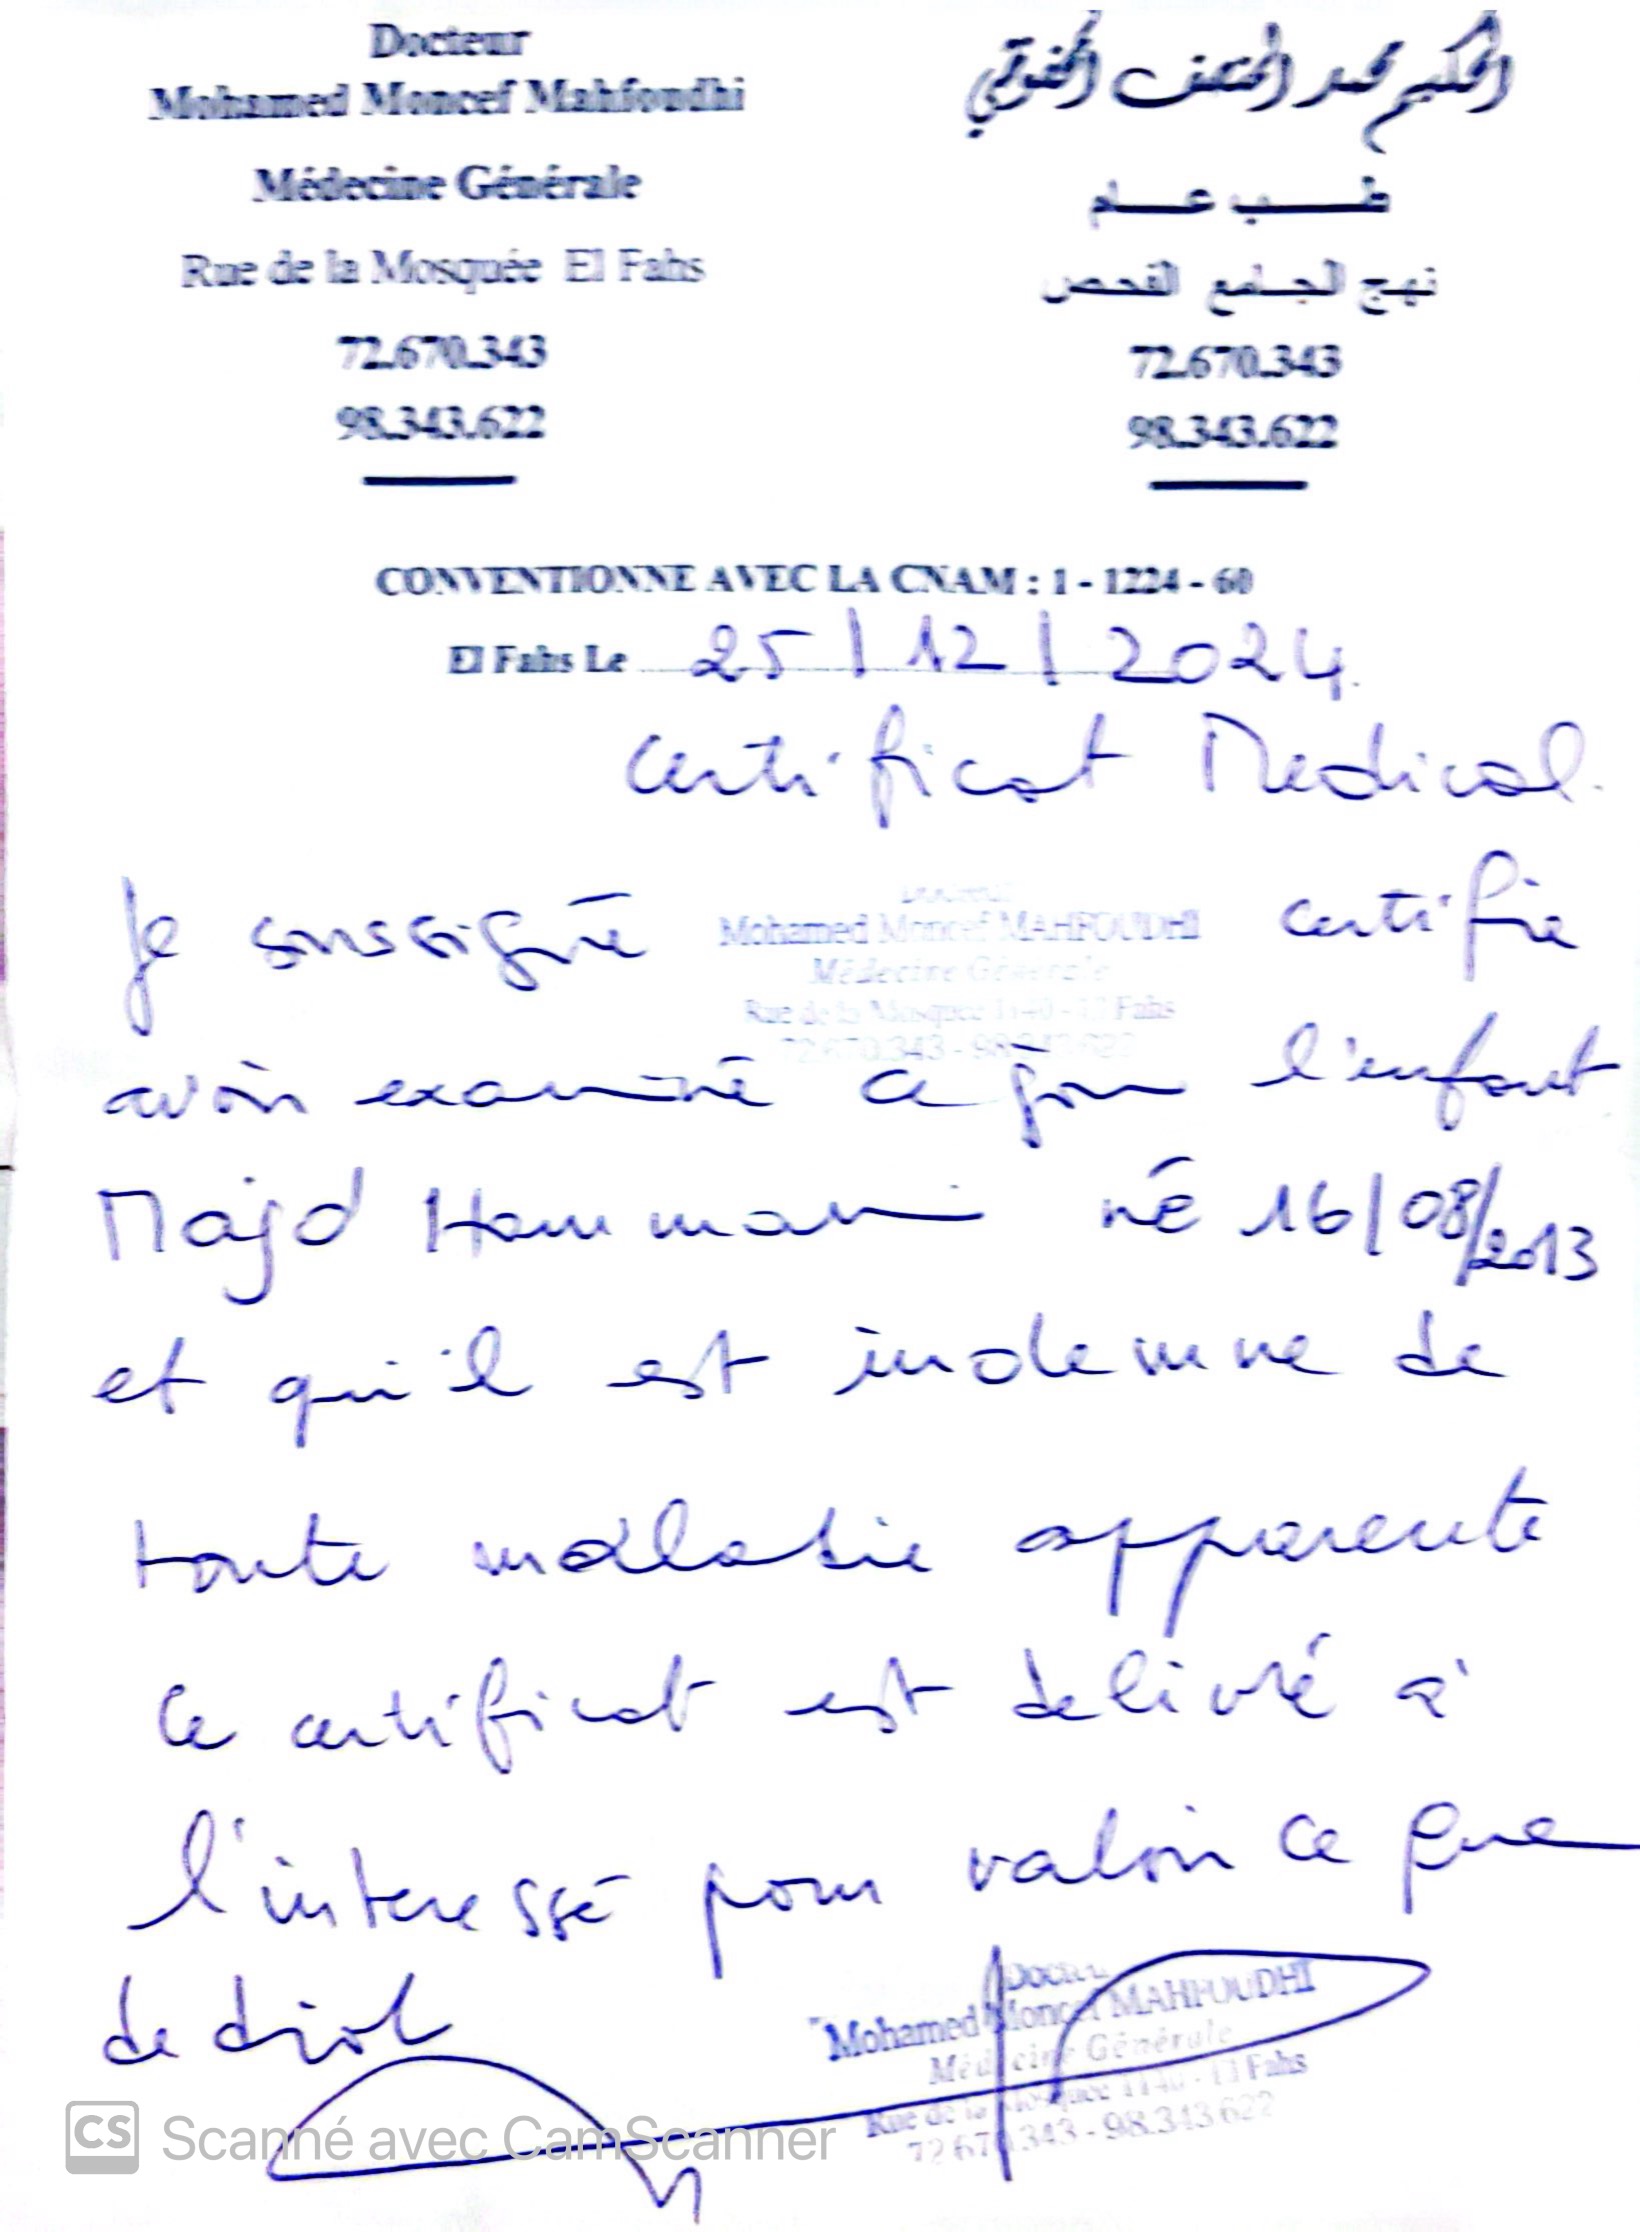 Docteur
Mohamed Moncef Mahfoudhi
Médecine Générale
Rue de la Mosquée El Fahs
72.670.343
98.343.622
الحكيم محمد المنصف المحفوظي
طب عام
نهج الجامع الفحص
72.670.343
98.343.622
CONVENTIONNE AVEC LA CNAM : 1 - 1224 - 60
El Fahs Le 25/12/2024
Certificat Medical.
Je soussigné
Docteur
Mohamed Moncef MAHFOUDHI
Médecine Générale
Rue de la Mosquée 1140 - El Fahs
72.670.343 - 98.343.622
certifie
avoir examiné ce jour l'enfant
Majd Hammami né 16/08/2013
et qu'il est indemne de
toute maladie apparente
Ce certificat est delivré à
l'interessé pour valoir ce que
de droit
Docteur
Mohamed Moncef MAHFOUDHI
Médecine Générale
Rue de la Mosquée 1140 - El Fahs
72 670.343 - 98.343.622
CS Scanné avec CamScanner